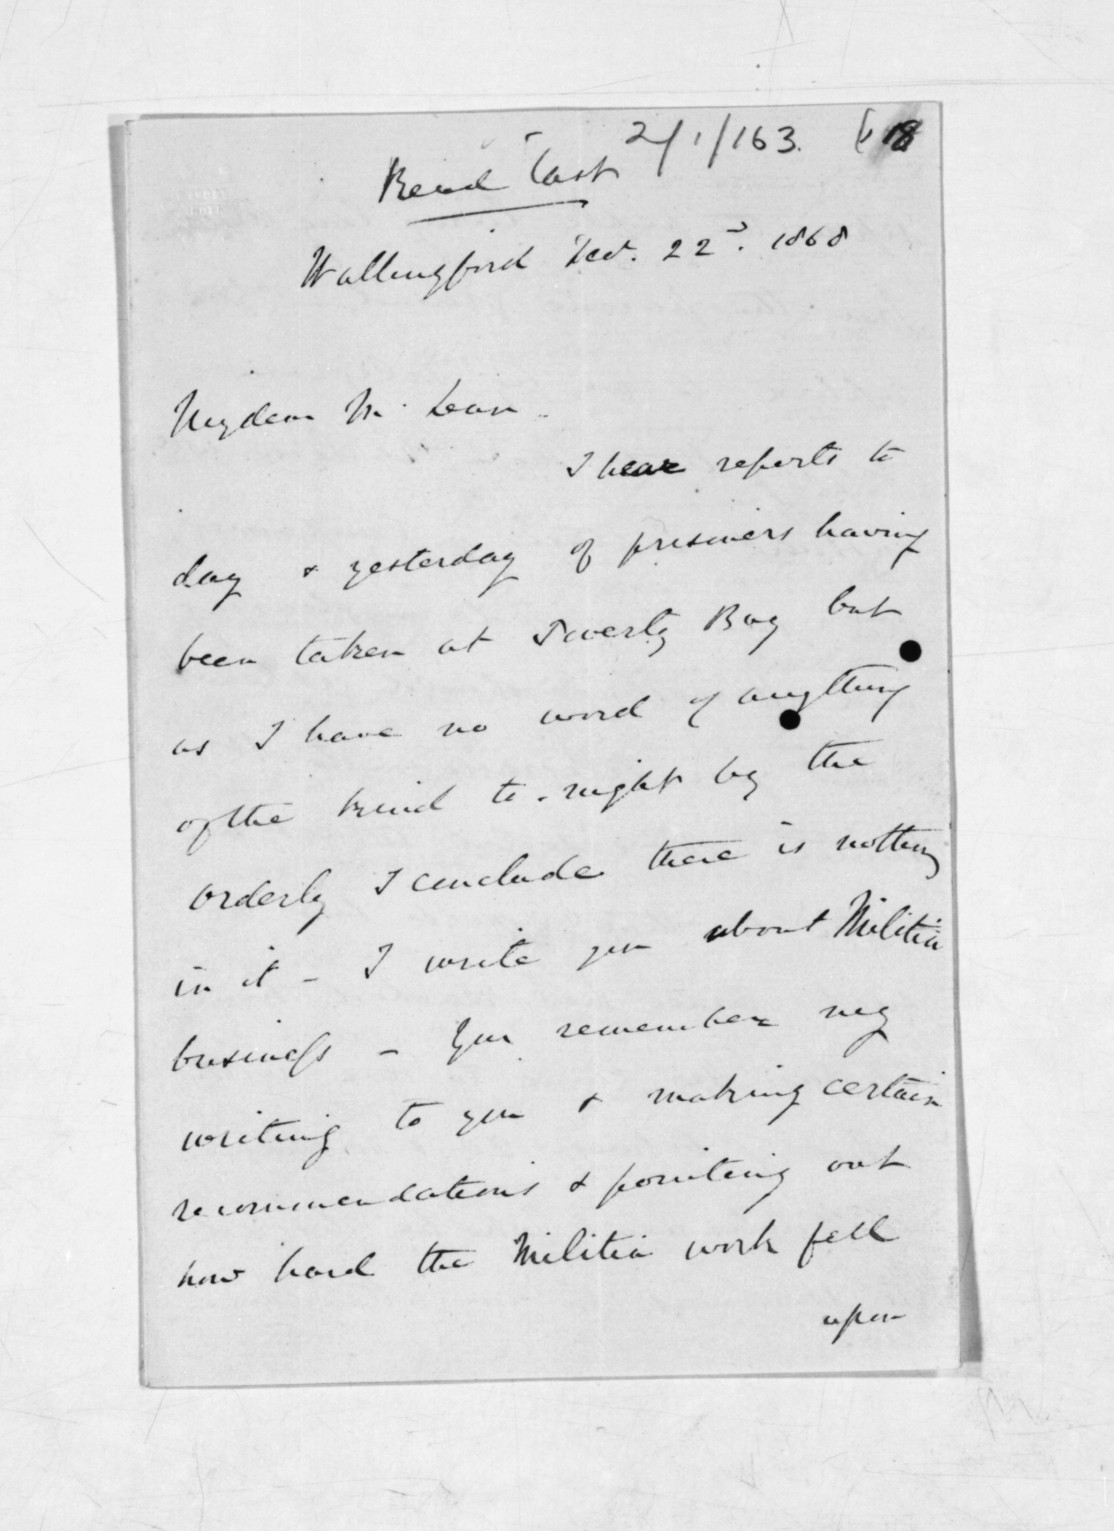 2/1/163. 18
Read last
Wallingford Dec. 22d. 1868
My dear McLean
I hear reports to
day & yesterday of prisoners having
been taken at Poverty Bay but
as I have no word of anything
of the kind to-night by the
orderly I conclude there is nothing
in it - I write you about Militia
business - You remember my
writing to you & making certain
recommendations & pointing out
how hard the Militia work fell
upon